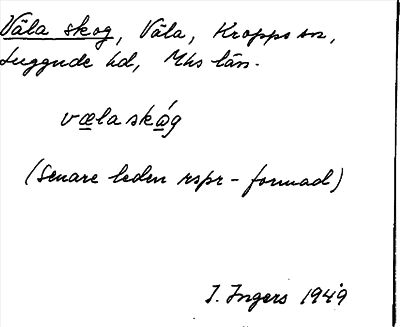 Väla skog, Väla, Kropps sn,
Luggude hd, Mhs län.
vælaskóg
(Senare leden rspr-formad)
I. Ingers 1949